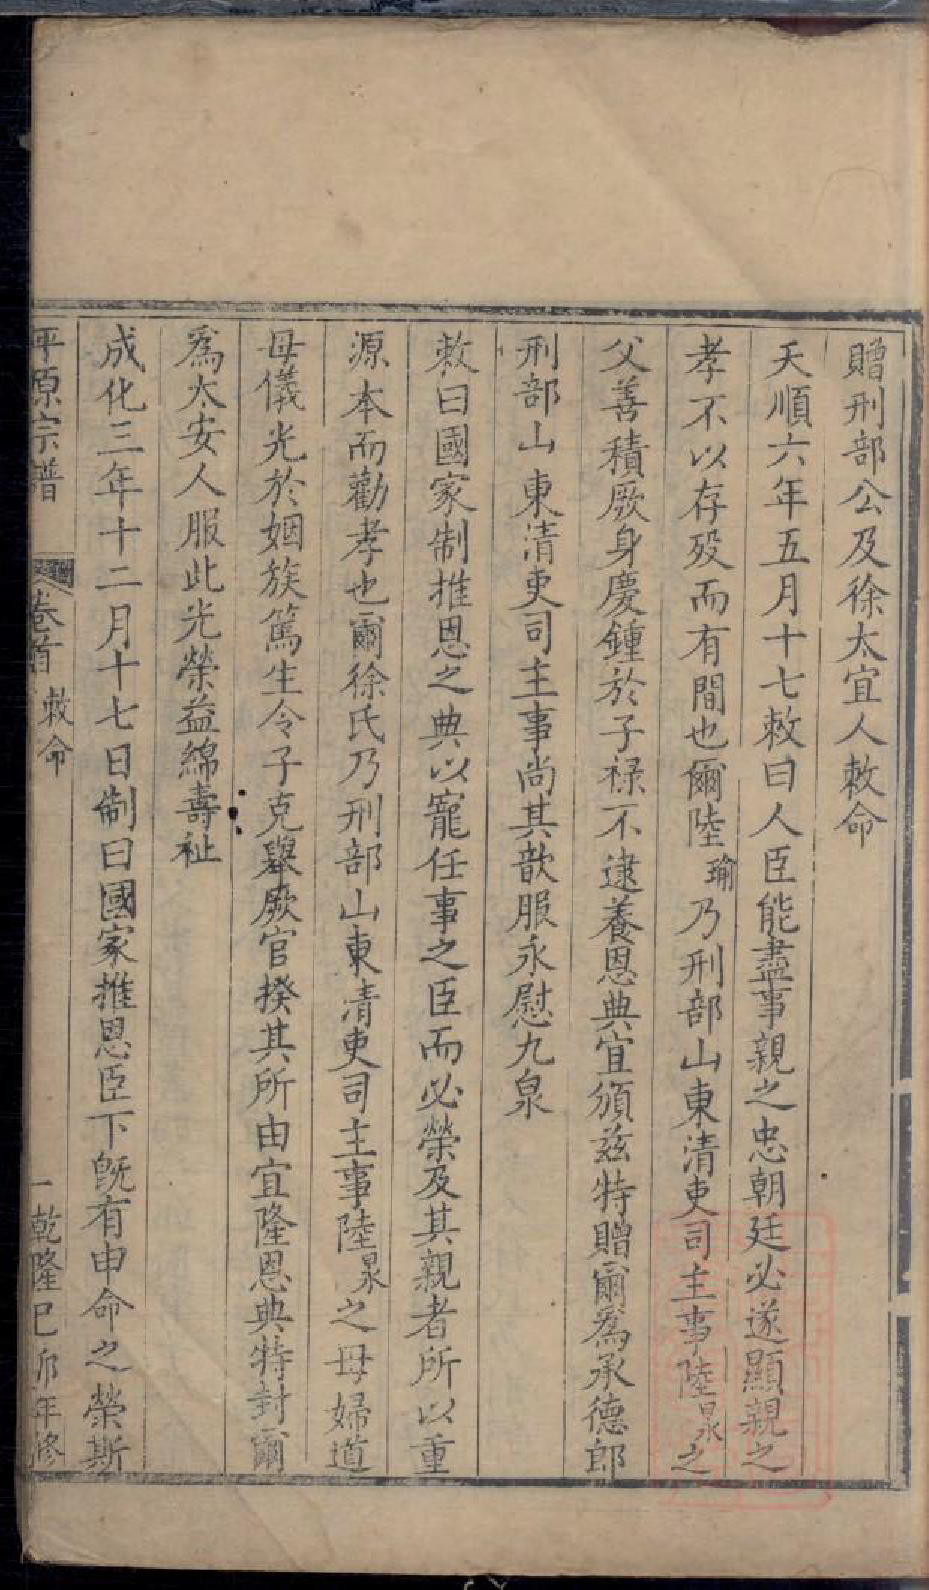 贈刑部公及徐太宜人敕命
天順六年五月十七敕曰人臣能盡事親之忠朝廷必遂顯親之
孝不以存歿而有間也爾陸瑜乃刑部山東清吏司主事陸㫤之
父善積厥身慶鍾於子祿不逮養恩典宜頒兹特贈爾爲承德郎
刑部山東清吏司主事尚其歆服永慰九泉
敕曰國家制推恩之典以寵任事之臣而必榮及其親者所以重
源本而勸孝也爾徐氏乃刑部山東清吏司主事陸㫤之母婦道
母儀光於姻族篤生令子克舉厥官揆其所由宜隆恩典特封爾
爲太安人服此光榮益綿壽祉
成化三年十二月十七日制曰國家推恩臣下旣有申命之榮斯
平原宗譜 卷首 敕命 一 乾隆己卯年修